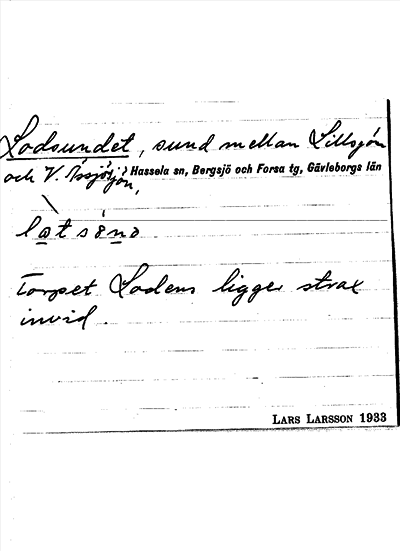 Lodsundet, sund mellan Lillsjön
och V. Hassela sn, Bergsjö och Forsa tg, Gävleborgs län
Torpet Lodens ligger strax
invid.
LARS LARSSON 1933